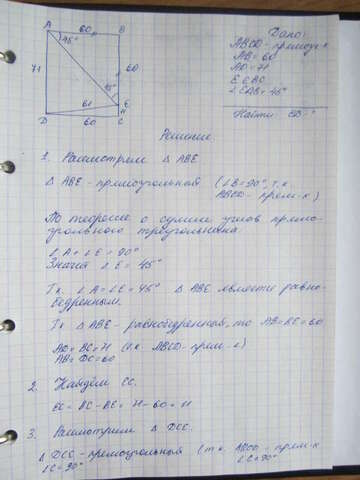 A 60 B
45°
71
60
45°
61
E
D 60 C
Дано:
ABCD - прямоуг-к
AB = 60
AD = 71
E ∈ BC
∠EAB = 45°
Найти: ED - ?
Решение.
1. Рассмотрим △ ABE
△ ABE - прямоугольный (∠B = 90°, т.к.
ABCD - прям-к)
По теореме о сумме углов прямо-
угольного треугольника:
∠A + ∠E = 90°
Значит ∠E = 45°
Т.к. ∠A = ∠E = 45° △ ABE является равно-
бедренным.
Тк. △ ABE - равнобедренный, то AB = BE = 60
AD = BC = 71 (т.к. ABCD - прям-к)
AB = DC = 60
2. Найдём EC.
EC = BC - BE = 71 - 60 = 11
3. Рассмотрим △ DCE.
△ DCE - прямоугольный (т.к. ABCD - прям-к
∠C = 90° ∠C = 90°